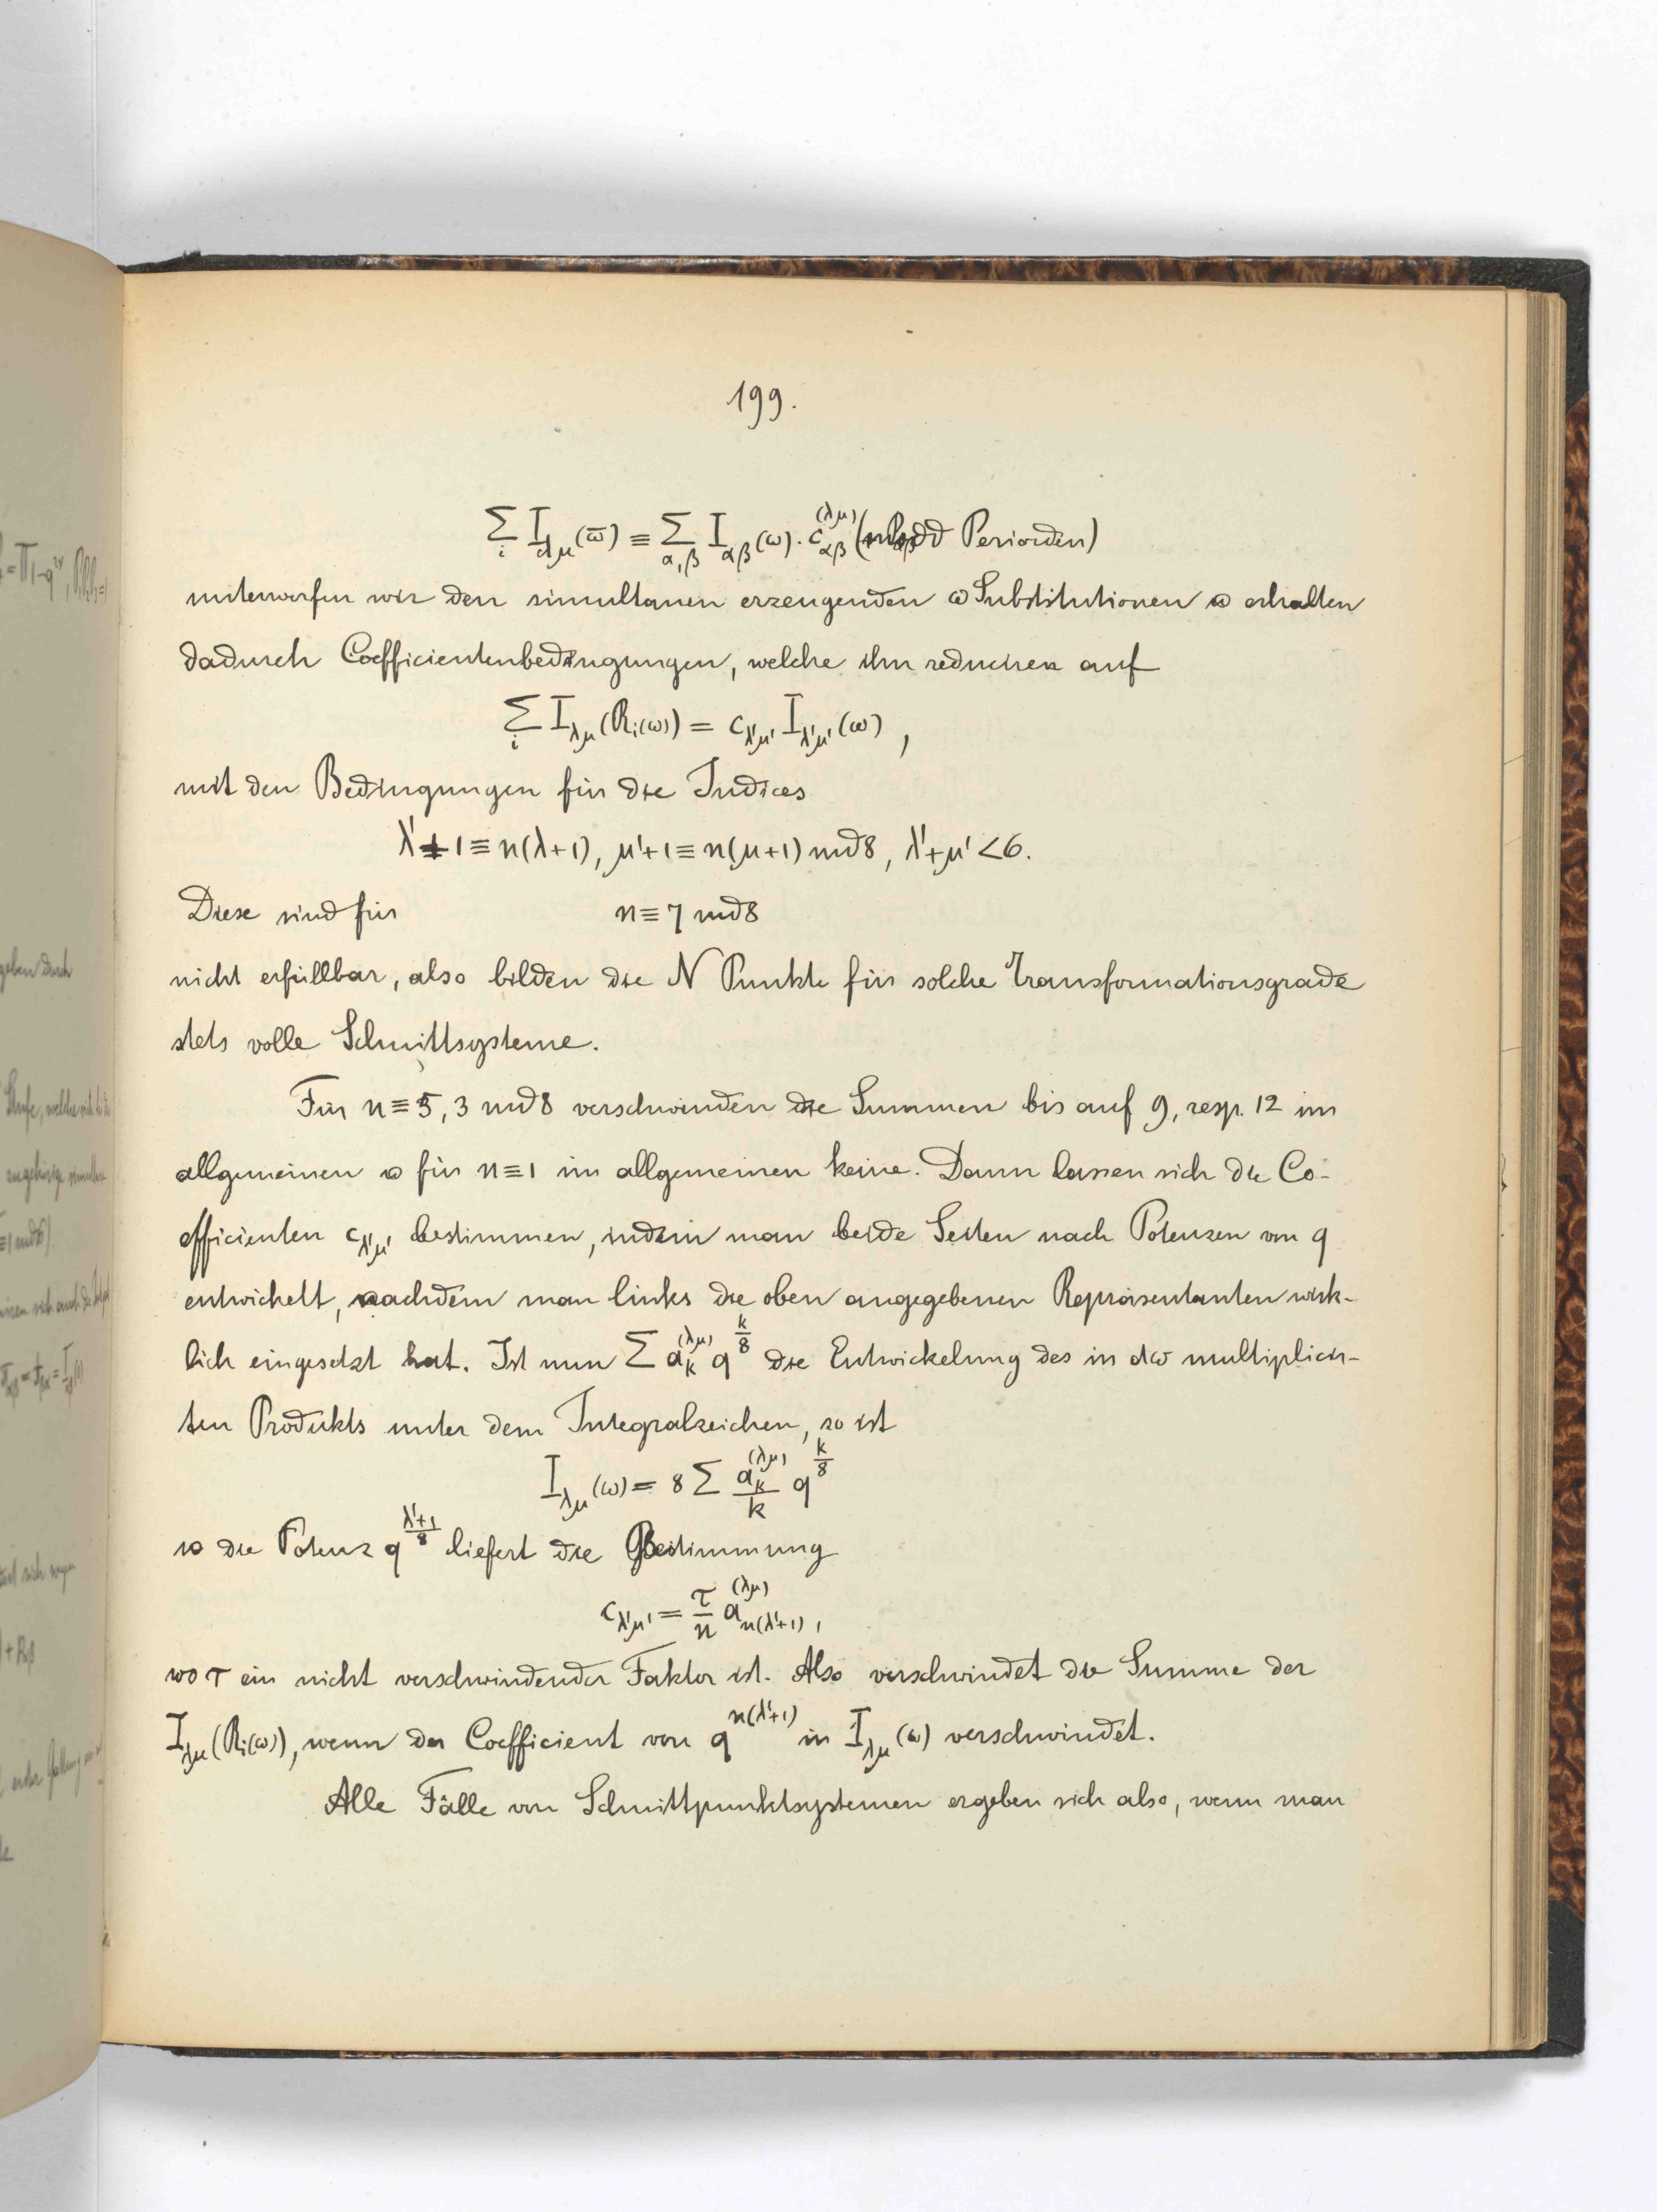 199.
∑_i I_{λμ}(ω̄) ≡ ∑_{α,β} I_{αβ}(ω). c_{αβ}^{(λμ)} (modd Perioden)
unterwerfen wir den simultanen erzeugenden ω Substitutionen u erhalten
dadurch Coefficientenbedingungen, welche ihn reducieren auf
∑_i I_{λμ}(R_i(ω)) = c_{λ'μ'} I_{λ'μ'}(ω),
mit den Bedingungen für die Indices
λ'+1 ≡ n(λ+1), μ'+1 ≡ n(μ+1) mod 8, λ'+μ' < 6.
Diese sind für n ≡ 7 mod 8
nicht erfüllbar, also bilden die N Punkte für solche Transformationsgrade
stets volle Schnittsysteme.
Für n ≡ 5, 3 mod 8 verschwinden die Summen bis auf 9, resp. 12 im
allgemeinen u für n ≡ 1 im allgemeinen keine. Dann lassen sich die Co-
efficienten c_{λ'μ'} bestimmen, indem man beide Seiten nach Potenzen von q
entwickelt, nachdem man links die oben angegebenen Repräsentanten wirk-
lich eingesetzt hat. Ist nun ∑ a_k^{(λμ)} q^{k/8} die Entwickelung des in dω multiplicir-
ten Produkts unter dem Integralzeichen, so ist
I_{λμ}(ω) = 8 ∑ a_k^{(λμ)}/k q^{k/8}
u die Potenz q^{(λ'+1)/8} liefert die Bestimmung
c_{λ'μ'} = τ/n a_{n(λ'+1)}^{(λμ)},
wo τ ein nicht verschwindender Faktor ist. Also verschwindet die Summe der
I_{λμ}(R_i(ω)), wenn der Coefficient von q^{n(λ'+1)} in I_{λμ}(ω) verschwindet.
Alle Fälle von Schnittpunktsystemen ergeben sich also, wenn man